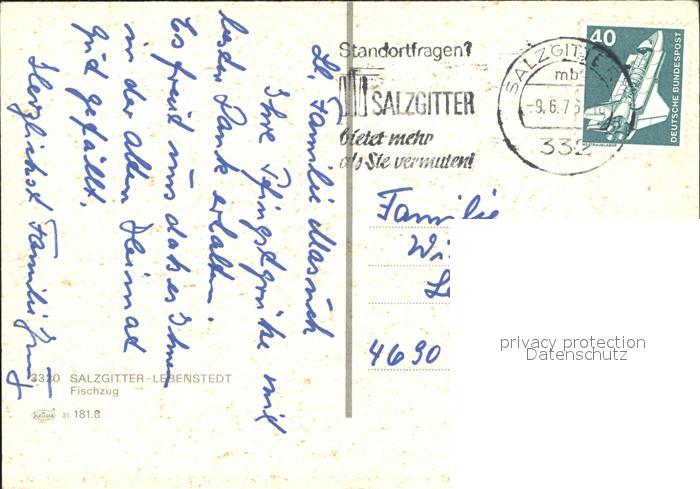 Lb. Familie Masuch
Ihre Pfingstgrüße mit
besten Dank erhalten.
Es freud uns das es Ihnen
in der alten Heimat
gud gefällt.
Herzlichst Familie
3320 SALZGITTER-LEBENSTEDT
Fischzug
Krüger 31 181.8
Standortfragen?
SALZGITTER
bietet mehr
als Sie vermuten!
SALZGITTER
mb
-9.6.76
332
40
DEUTSCHE BUNDESPOST
Familie
4690
privacy protection
Datenschutz